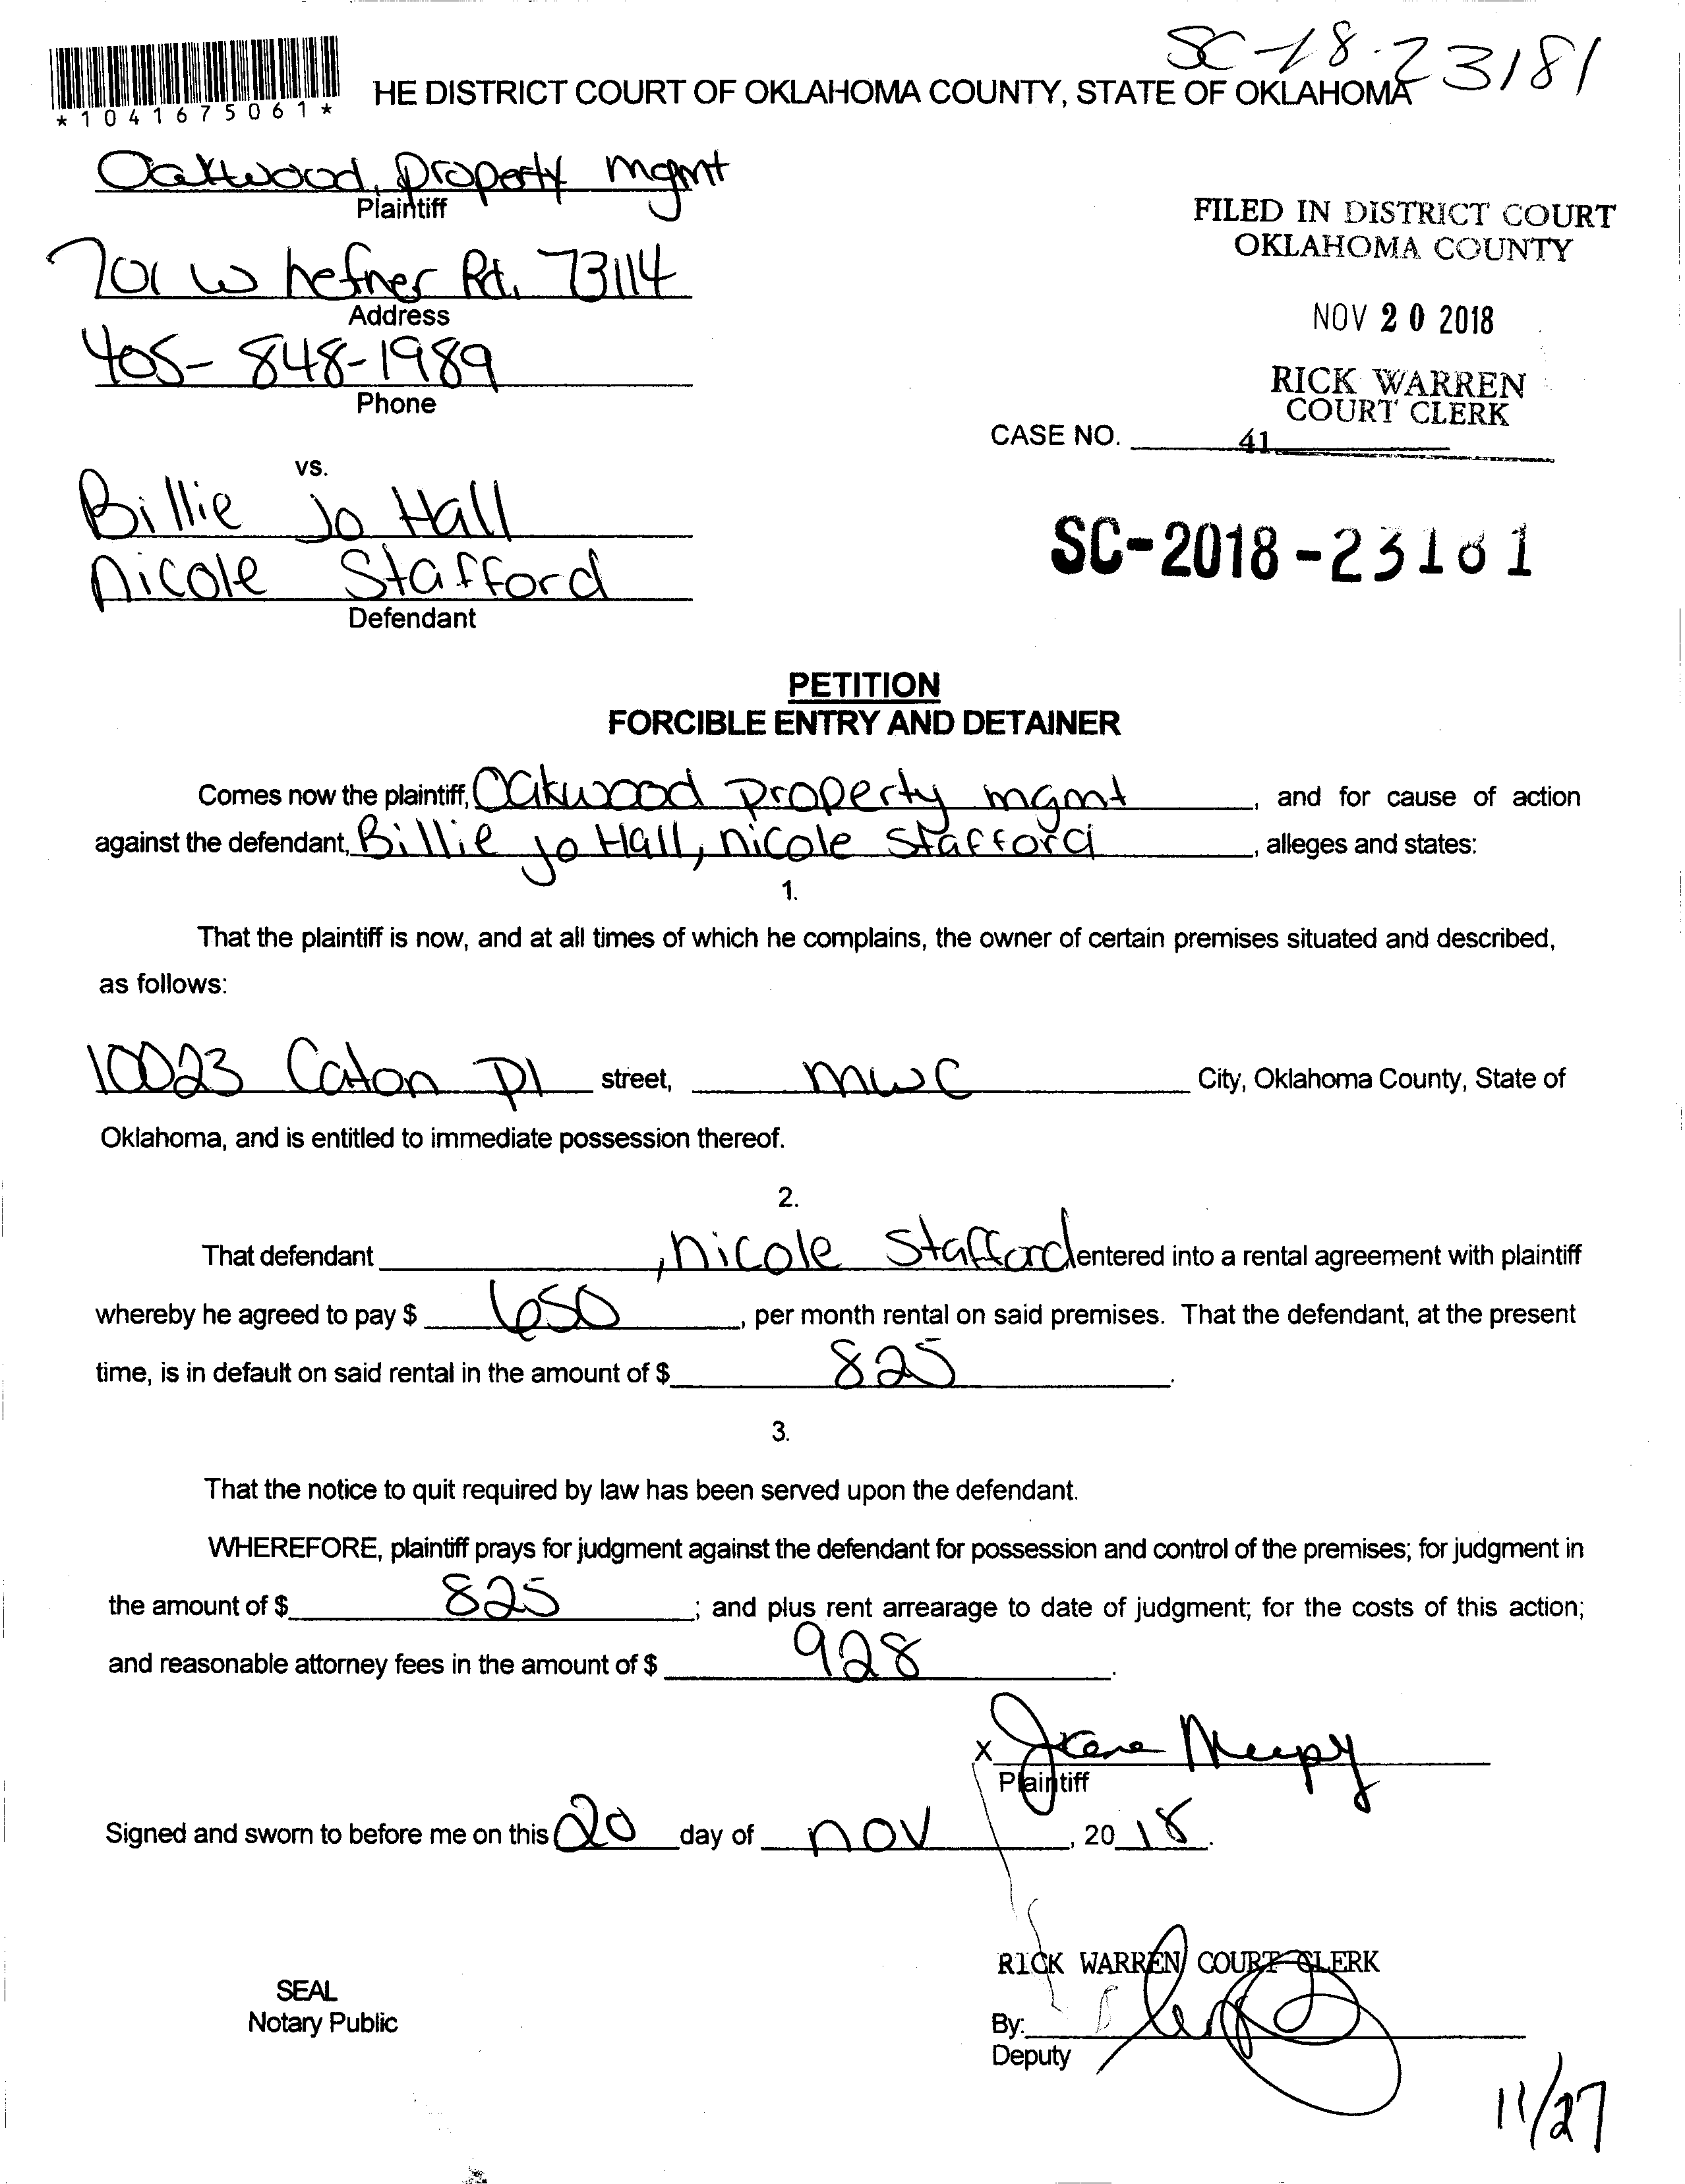 SC-18-23181
*1041675061*
HE DISTRICT COURT OF OKLAHOMA COUNTY, STATE OF OKLAHOMA
Oakwood property mgmt
Plaintiff
FILED IN DISTRICT COURT
OKLAHOMA COUNTY
701 W hefner Rd. 73114
Address
NOV 20 2018
405-848-1989
Phone
RICK WARREN
COURT CLERK
CASE NO. 41
vs.
Billie jo Hall
Nicole Stafford
Defendant
SC-2018-23181
PETITION
FORCIBLE ENTRY AND DETAINER
Comes now the plaintiff, Oakwood property mgmt, and for cause of action
against the defendant, Billie jo Hall, nicole Stafford, alleges and states:
1.
That the plaintiff is now, and at all times of which he complains, the owner of certain premises situated and described,
as follows:
10023 Caton Pl street, mwc City, Oklahoma County, State of
Oklahoma, and is entitled to immediate possession thereof.
2.
That defendant , nicole Stafford entered into a rental agreement with plaintiff
whereby he agreed to pay $ 650, per month rental on said premises. That the defendant, at the present
time, is in default on said rental in the amount of $ 825.
3.
That the notice to quit required by law has been served upon the defendant.
WHEREFORE, plaintiff prays for judgment against the defendant for possession and control of the premises; for judgment in
the amount of $ 825; and plus rent arrearage to date of judgment; for the costs of this action;
and reasonable attorney fees in the amount of $ 928.
X
Plaintiff
Signed and sworn to before me on this 20 day of nov, 20 18.
RICK WARREN COURT CLERK
SEAL
Notary Public
By:
Deputy
11/27